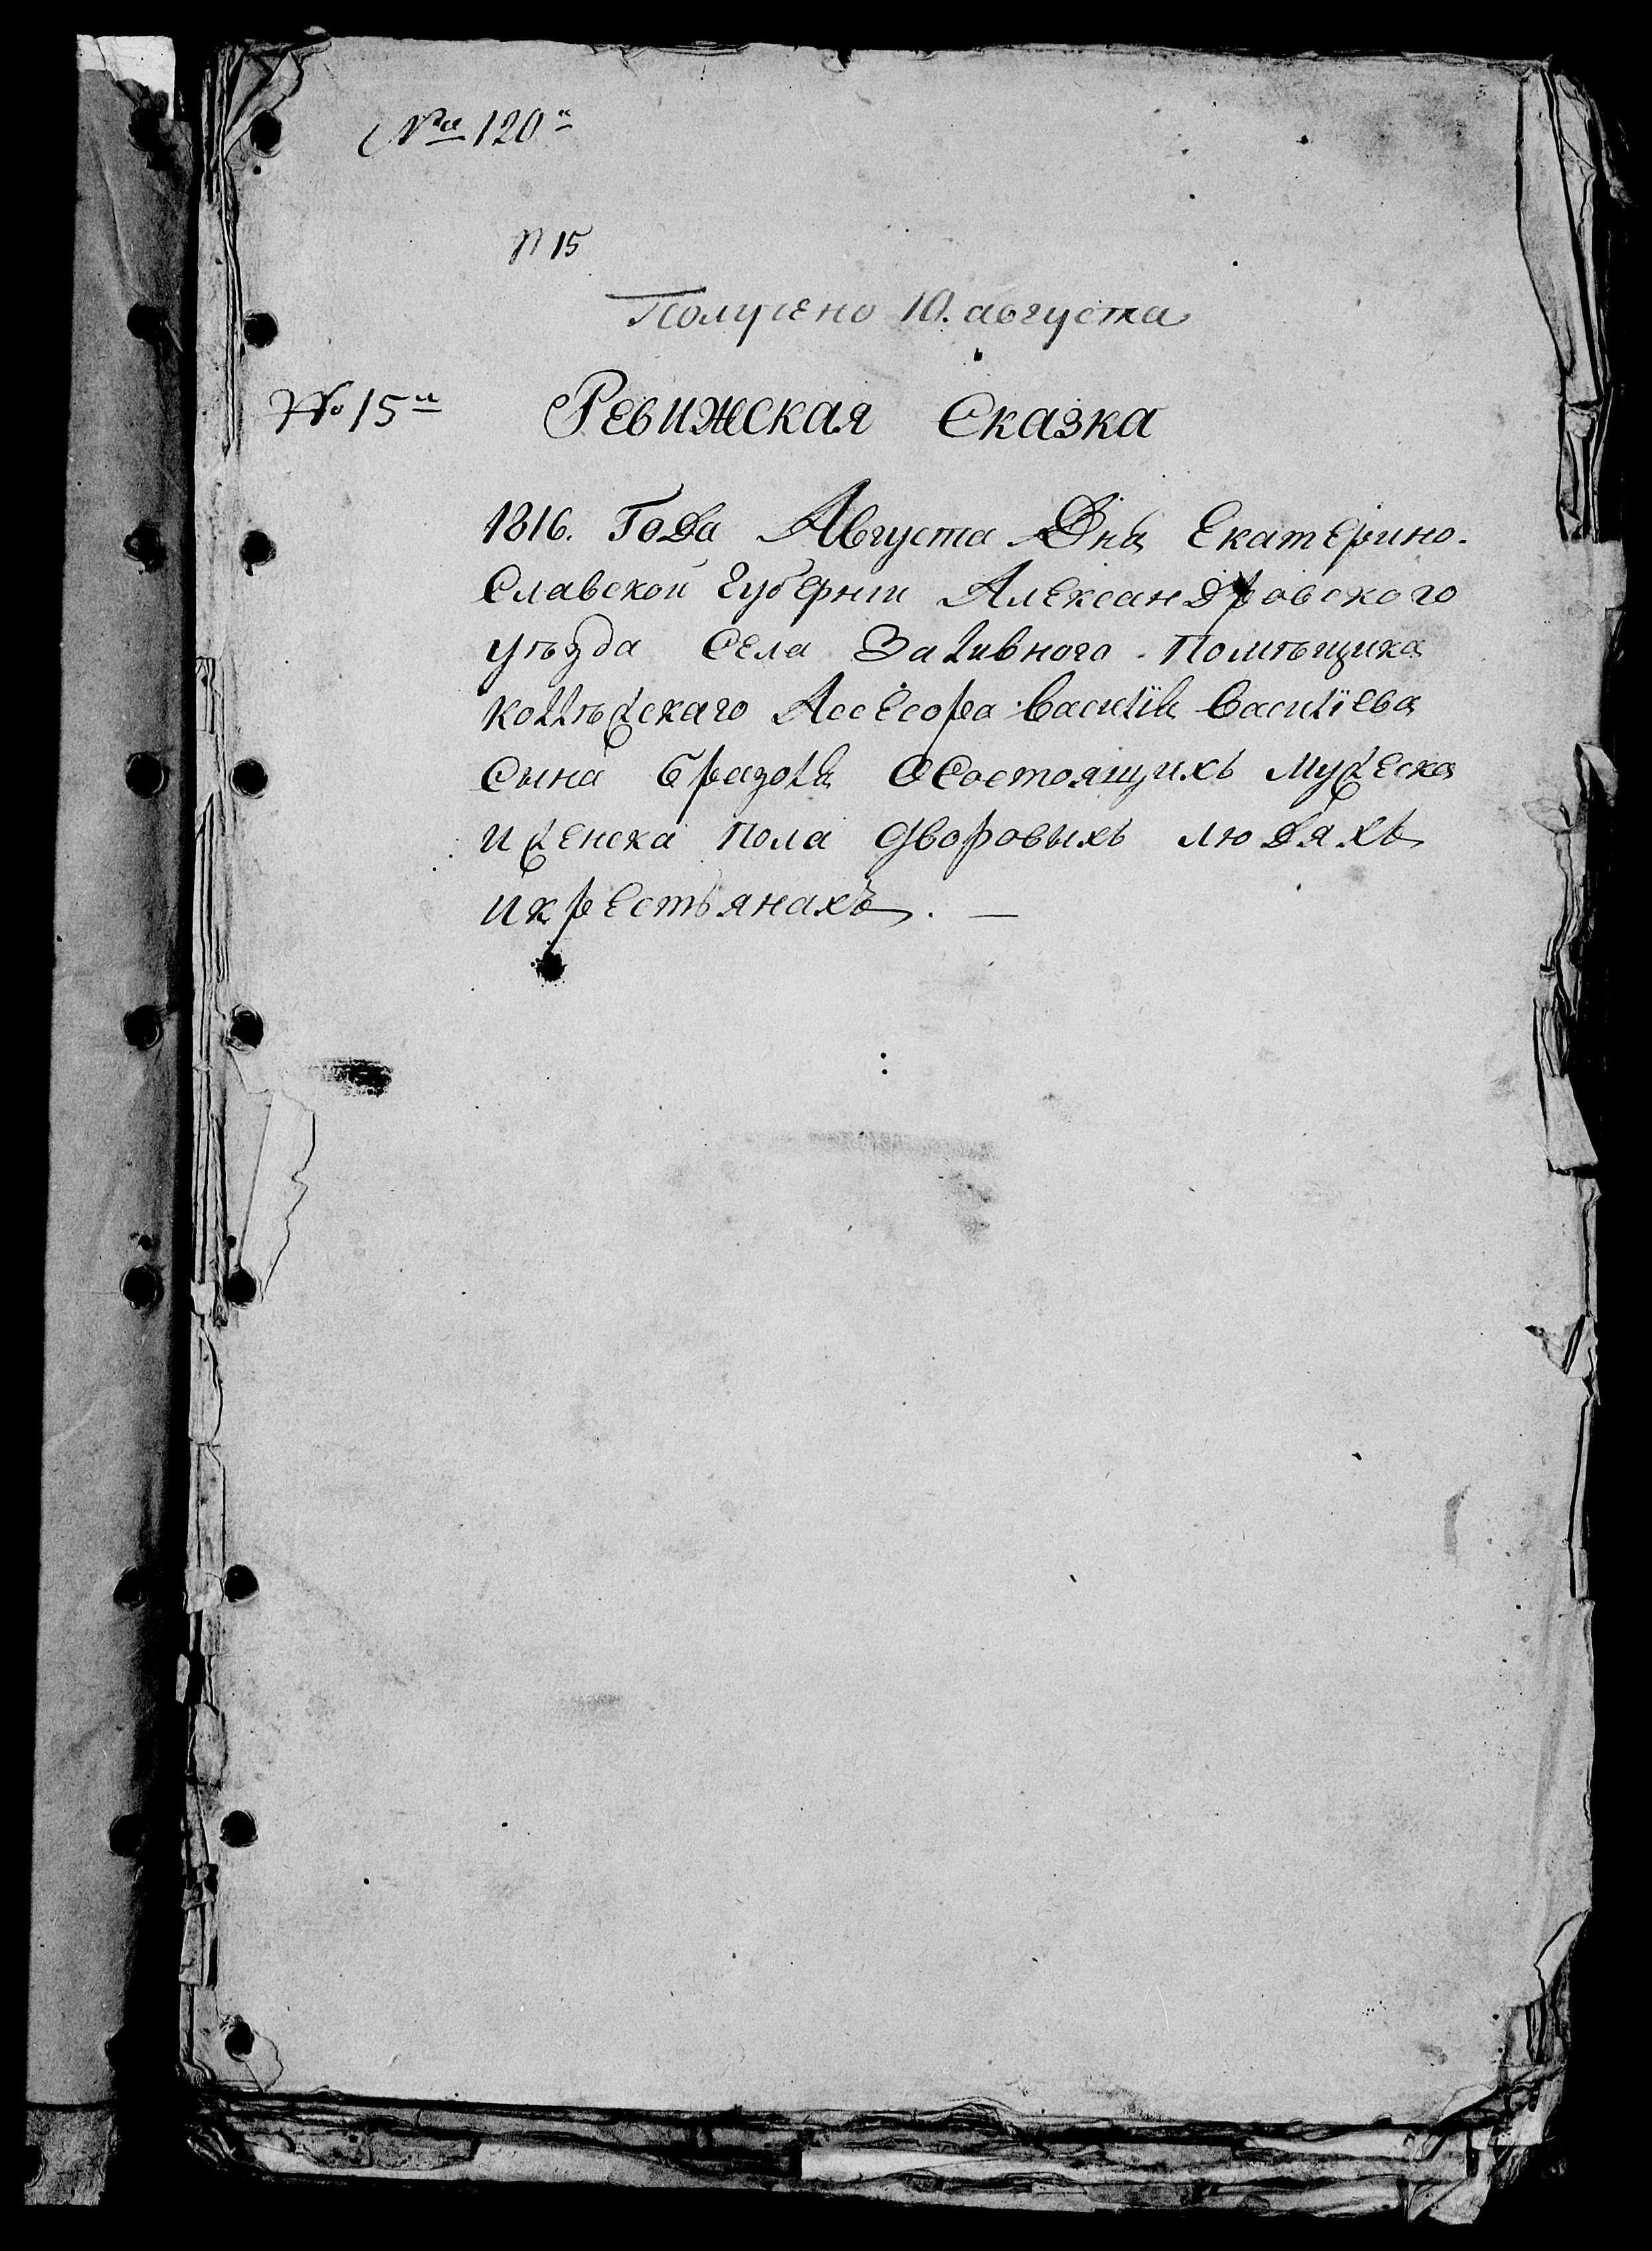 № 120й
N 15
Получено 10. августа
№ 15й
Ревижская Сказка
1816. Года Августа Дня Екатерино-
Славской Губернии Александровского
уѣзда Села Заливного Помѣщика
коллѣжскаго Ассесора василія василіева
Сына Бразоля оСостоящихъ мужеска
и женска пола дворовыхъ людяхъ
икрестьянахъ. —